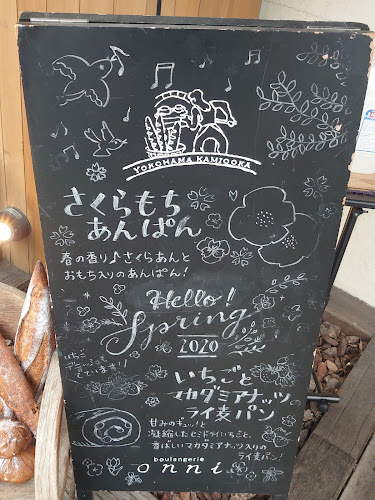 YOKOHAMA KAMIOOKA
さくらもち
あんぱん
春の香り♪さくらあんと
おもち入りのあんぱん!
Hello!
Spring
2020
いちごと
マカダミアナッツの
ライ麦パン
甘みのキュッ!と
凝縮したセミドライいちごと、
香ばしいマカダミアナッツ入りの
ライ麦パン
boulangerie
onni